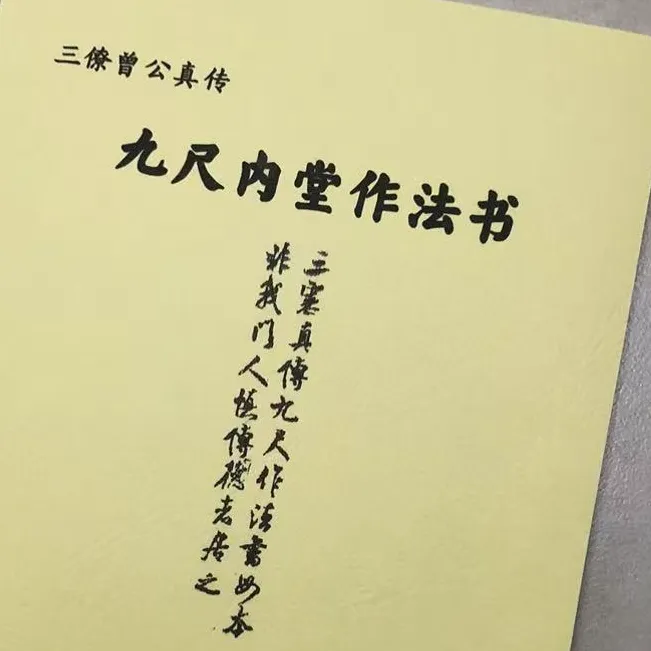 三僚曾公真传
九尺内堂作法书
三寮真傳九尺作法書如本
非我门人慎傳德者居之